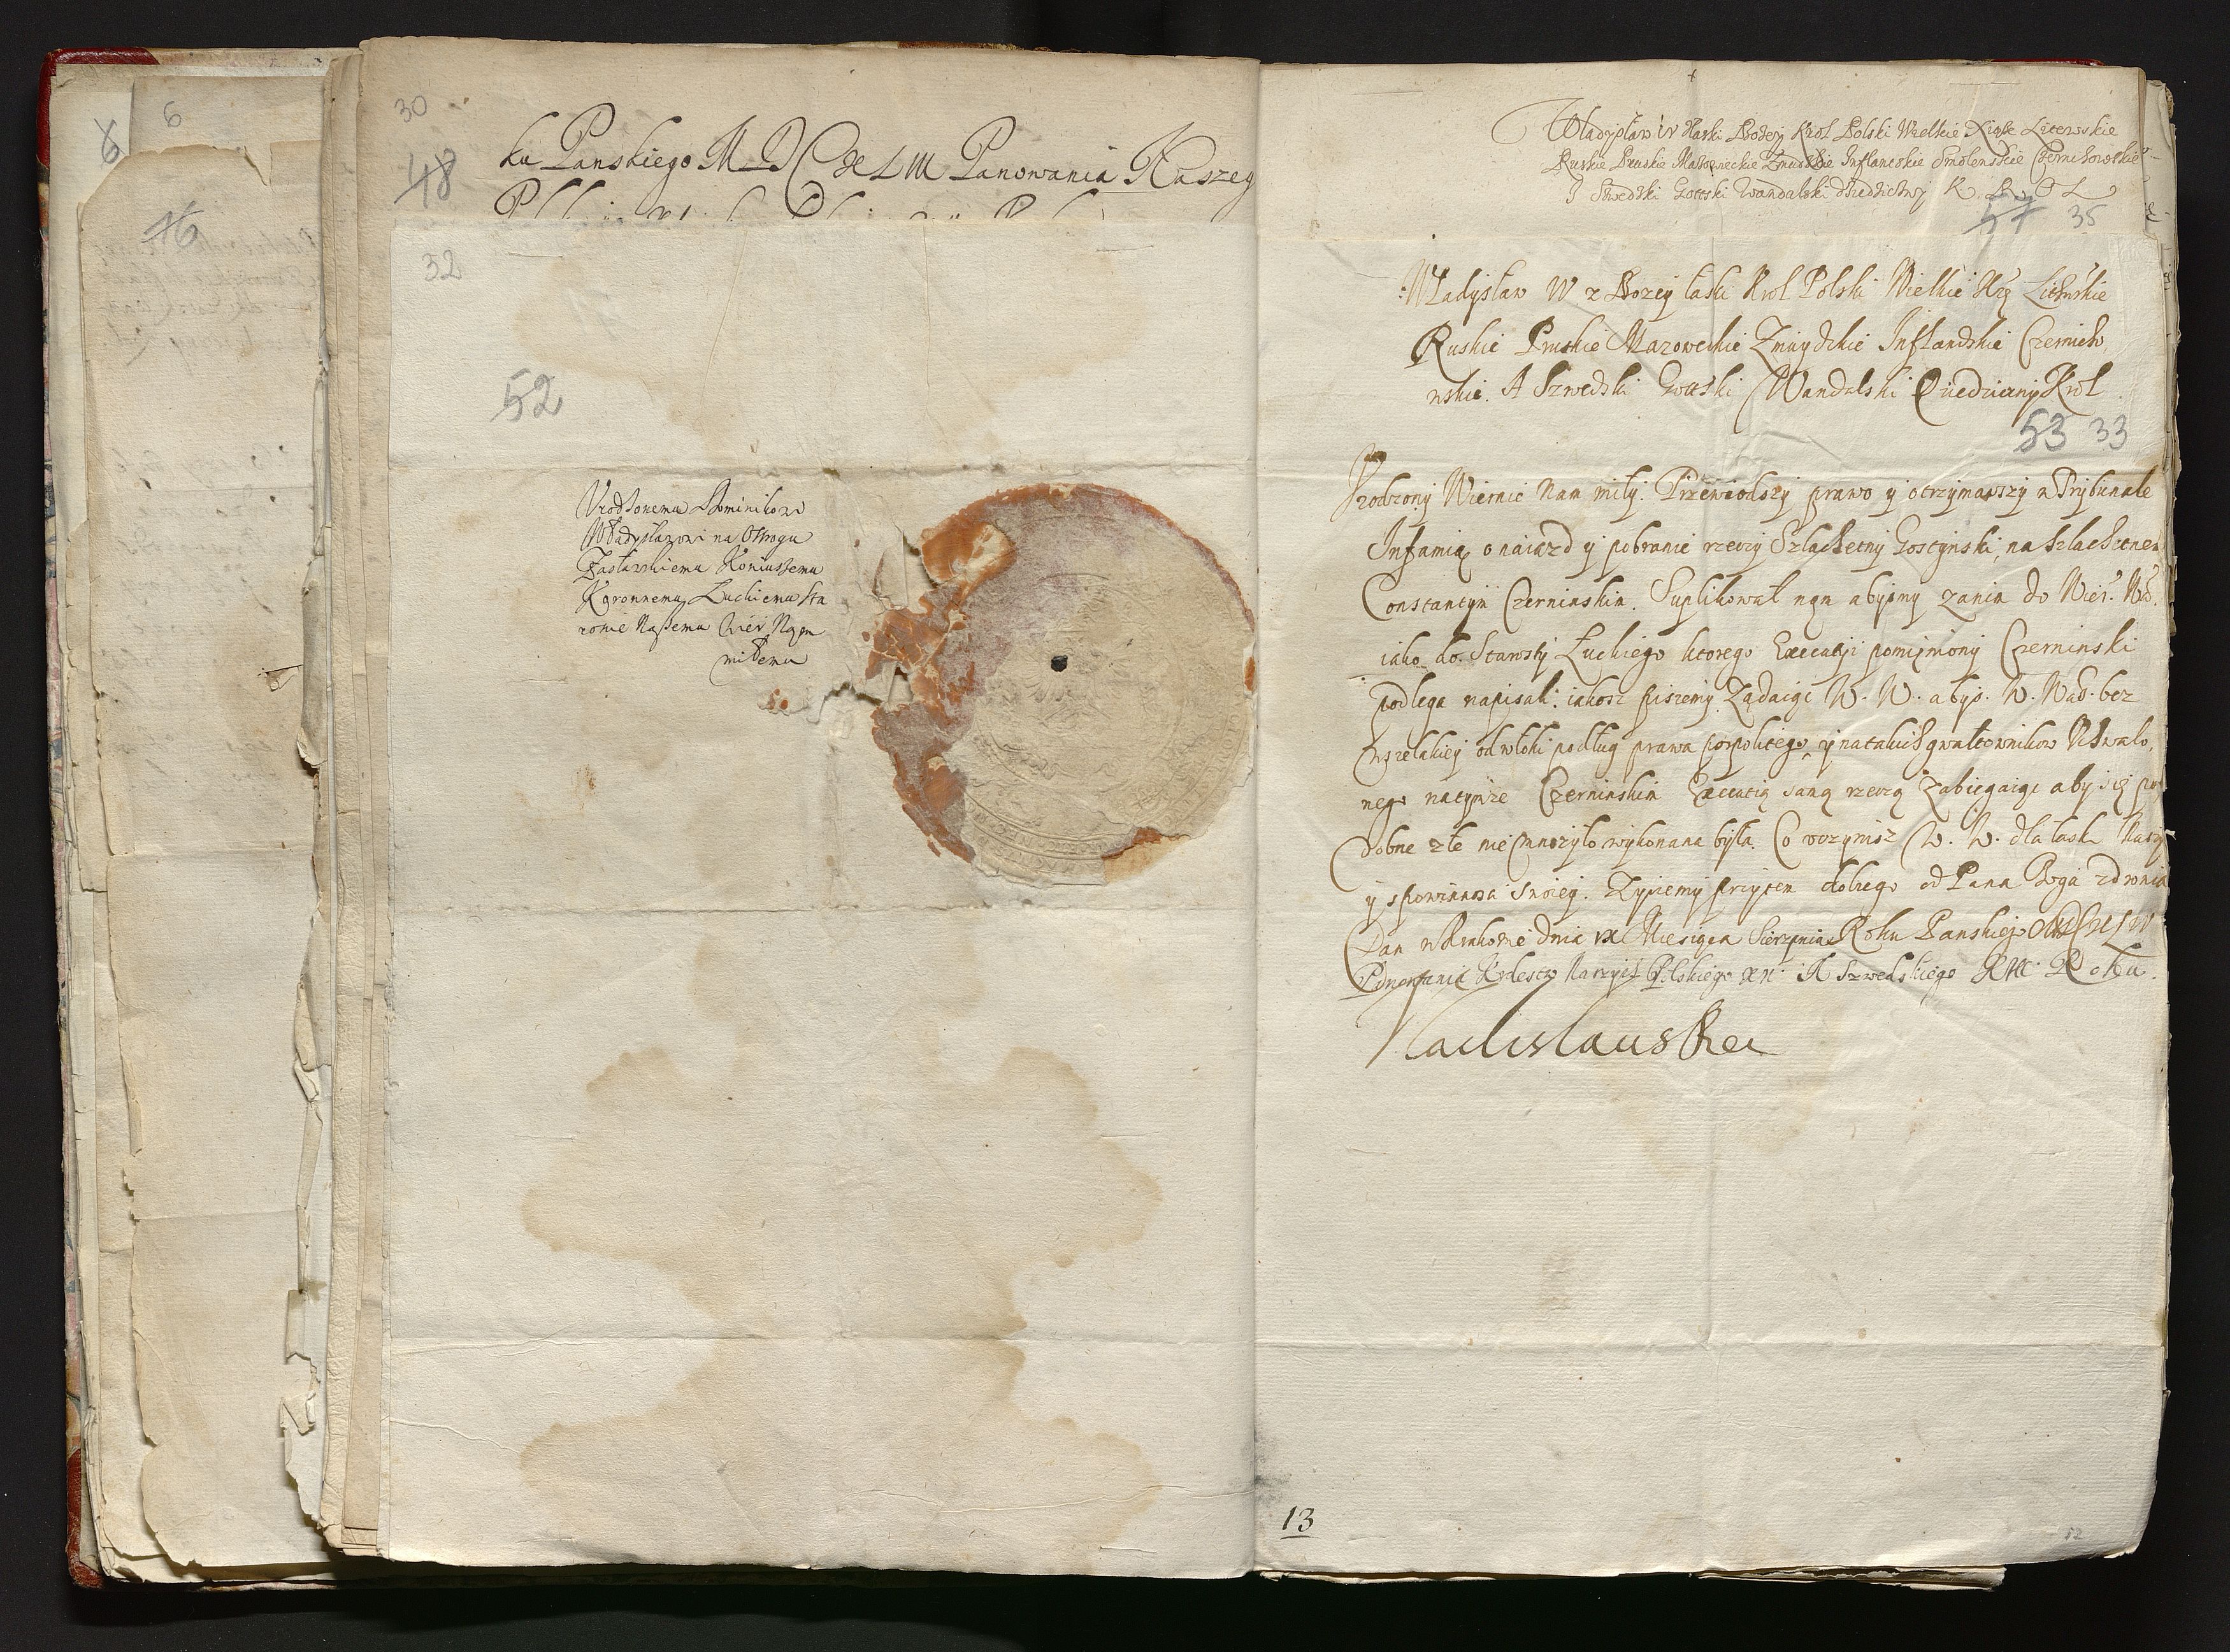 6
6
16
30
48
ku Panskiego M D C XLIII Panowania Naszeg
32
52
Vrodzonemu Dominikowi
Władysławowi na Ostrogu
Zasławskiemu Koniuszemu
Koronnemu Łuckiemu Sta
roscie Naszemu Wier. Nam
miłemu
Władysław IV z łaski Bożey Krol Polski Wielkie Xiąże Litewskie
Ruskie Pruskie Mazowieckie Zmudzkie Inflantskie Smolenskie Czernichowskie
Szwedzki Gottski Wandalski dziedziczny K
57 35
Władysław IV z Bozey łaski Krol Polski Wielkie Xżę Litewskie
Ruskie Pruskie Mazoweckie Zmuydzkie Inflandskie Czernicho
wskie. A Szwedski Gottski Wandalski Dziedziczny Krol
53 33
Vrodzony Wiernie Nam miły. Przewiodszy prawo y otrzymawszy w Trybunale
Infamią o naiazd y pobranie rzeczy Szlachetny Gostynski, na szlachetnem
Constantym Czerninskim. Suplikował nam abysmy zanim do Wier. Wd.
iako do Starosty Łuckiego ktorego Executyi pomieniony Czerninski
podlega napisali: iakosz piszemy. Ządaiąc W. W. abys. W. Wasz. bez
wszelakiey odwłoki podług prawa pospolitego y natakich gwałtownikow Vchwalo,
nego natymze Czerninskim Executią samą rzeczą zabiegaiąc aby się po
dobne złe nie mnozyło wykonana była. Co uczynisz W. W. dla łaski Naszy
y s powinnosci swoiey. Zyczemy przytem dobrego od Pana Boga zdrowia
Dan w Krakowie dnia IX Miesiąca Sierpnia Roku Panskiego MDCXLIV
Panowania Krolestw Naszych Polskiego XII A Szwedskiego XIII Roku.
Vladislaus Rex
13
52